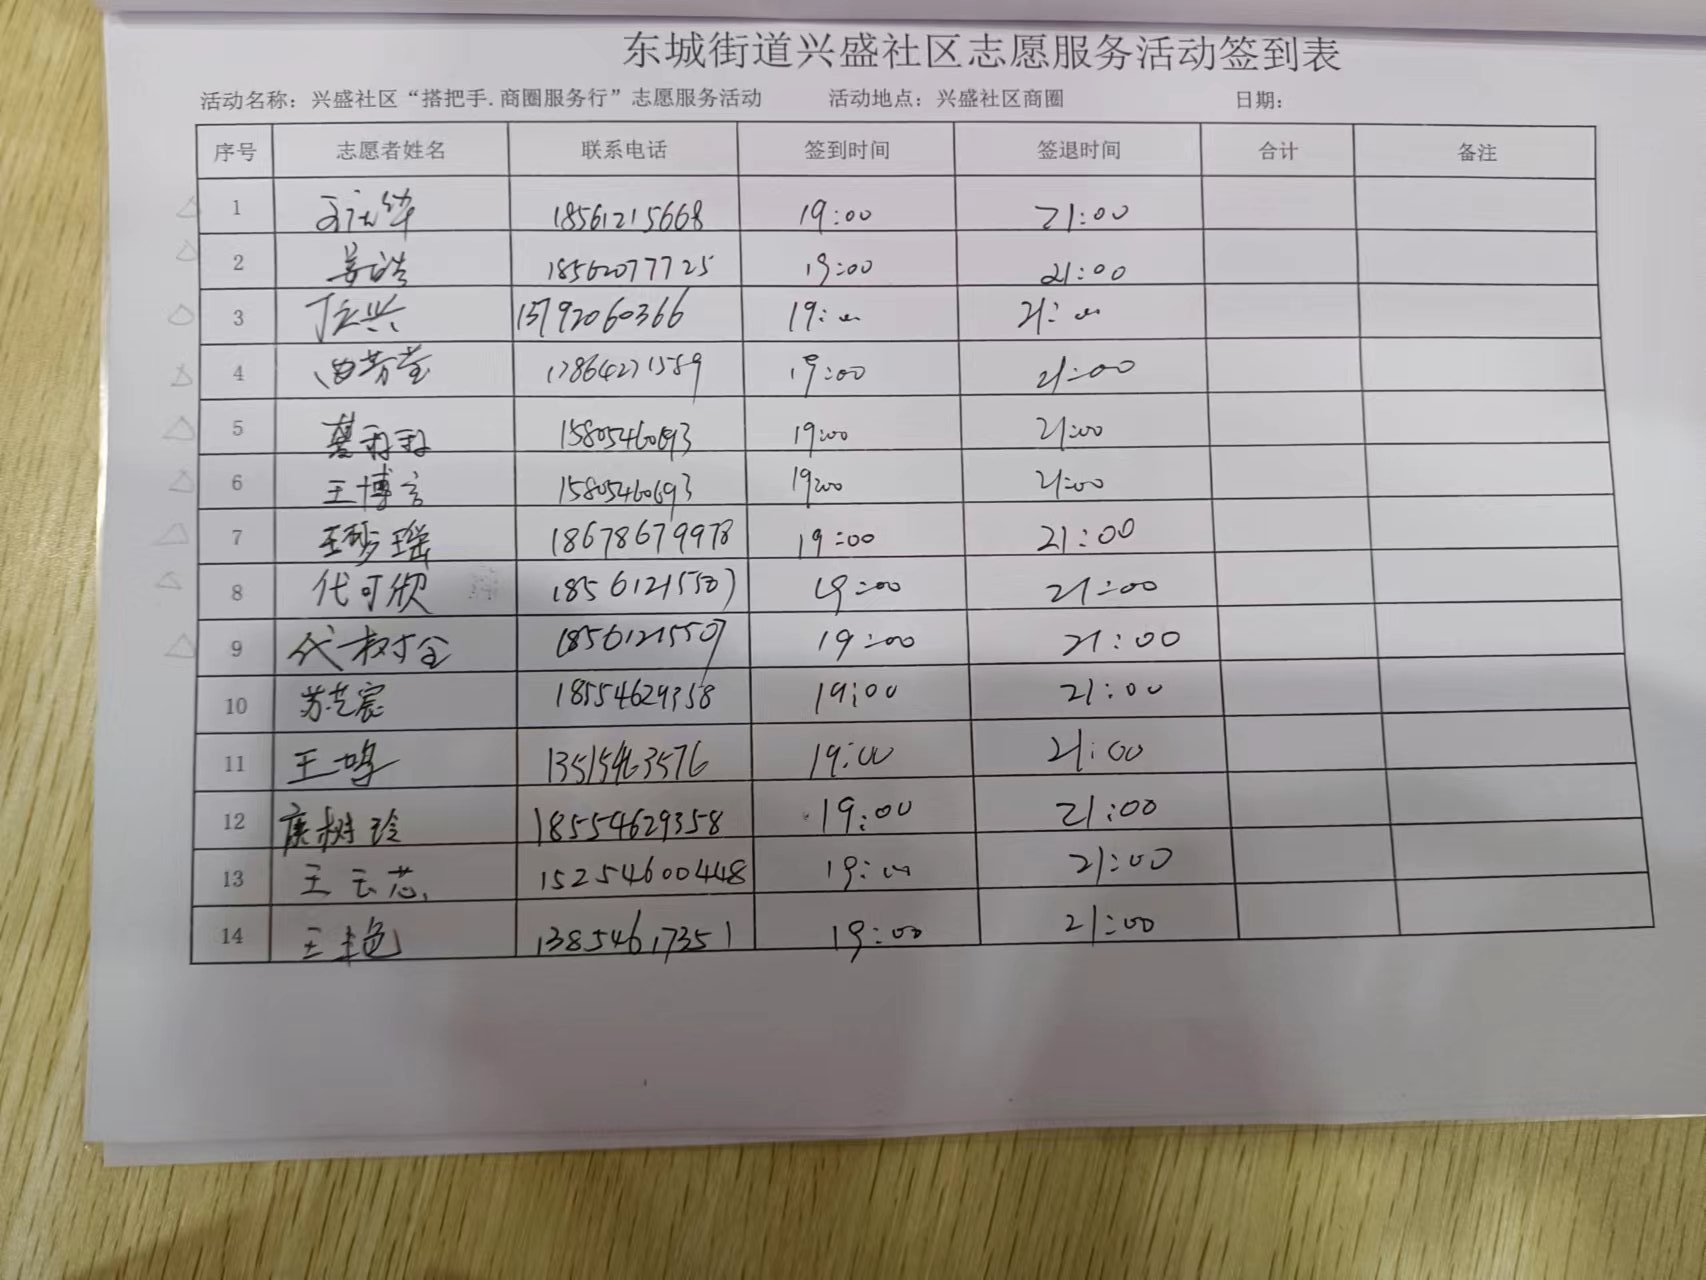 东城街道兴盛社区志愿服务活动签到表
活动名称：兴盛社区“搭把手.商圈服务行”志愿服务活动 活动地点：兴盛社区商圈 日期：
序号 志愿者姓名 联系电话 签到时间 签退时间 合计 备注
1 18561215668 19:00 21:00
2 姜浩 18562077725 19:00 21:00
3 丁立兴 13792060366 19:00 21:00
4 曲芳莹 17864271559 19:00 21:00
5 15805460693 19:00 21:00
6 王博言 15805460693 19:00 21:00
7 王梦瑶 18678679978 19:00 21:00
8 代可欣 18561215507 19:00 21:00
9 代树全 18561215507 19:00 21:00
10 苏艺宸 18554629358 19:00 21:00
11 王鸣 13515463576 19:00 21:00
12 康树玲 18554629358 19:00 21:00
13 王云芯 15254600448 19:00 21:00
14 王艳 13854617351 19:00 21:00